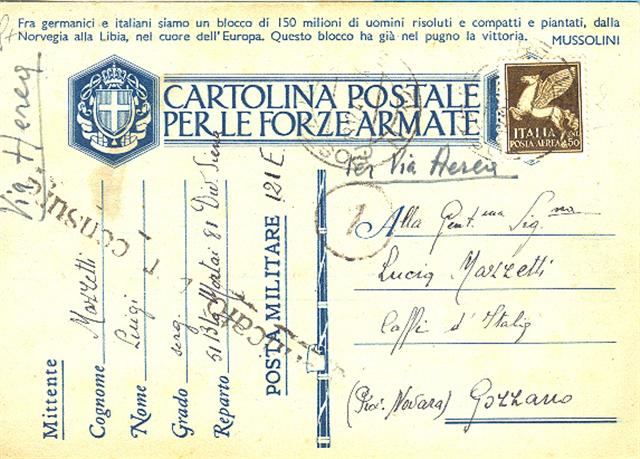 Fra germanici e italiani siamo un blocco di 150 milioni di uomini risoluti e compatti e piantati, dalla
Norvegia alla Libia, nel cuore dell'Europa. Questo blocco ha già nel pugno la vittoria. MUSSOLINI
CARTOLINA POSTALE
PER LE FORZE ARMATE
ITALIA
POSTA AEREA
50
Via Aerea
Per Via Aerea
Mittente
Cognome Mazzetti
Nome Luigi
Grado serg.
Reparto 51 Btg Mortai 81 Div Siena
POSTA MILITARE 121 E
1
Alla Gent.ma Sig.na
Lucia Mazzetti
Caffè d'Italia
(Prov. Novara) Gozzano